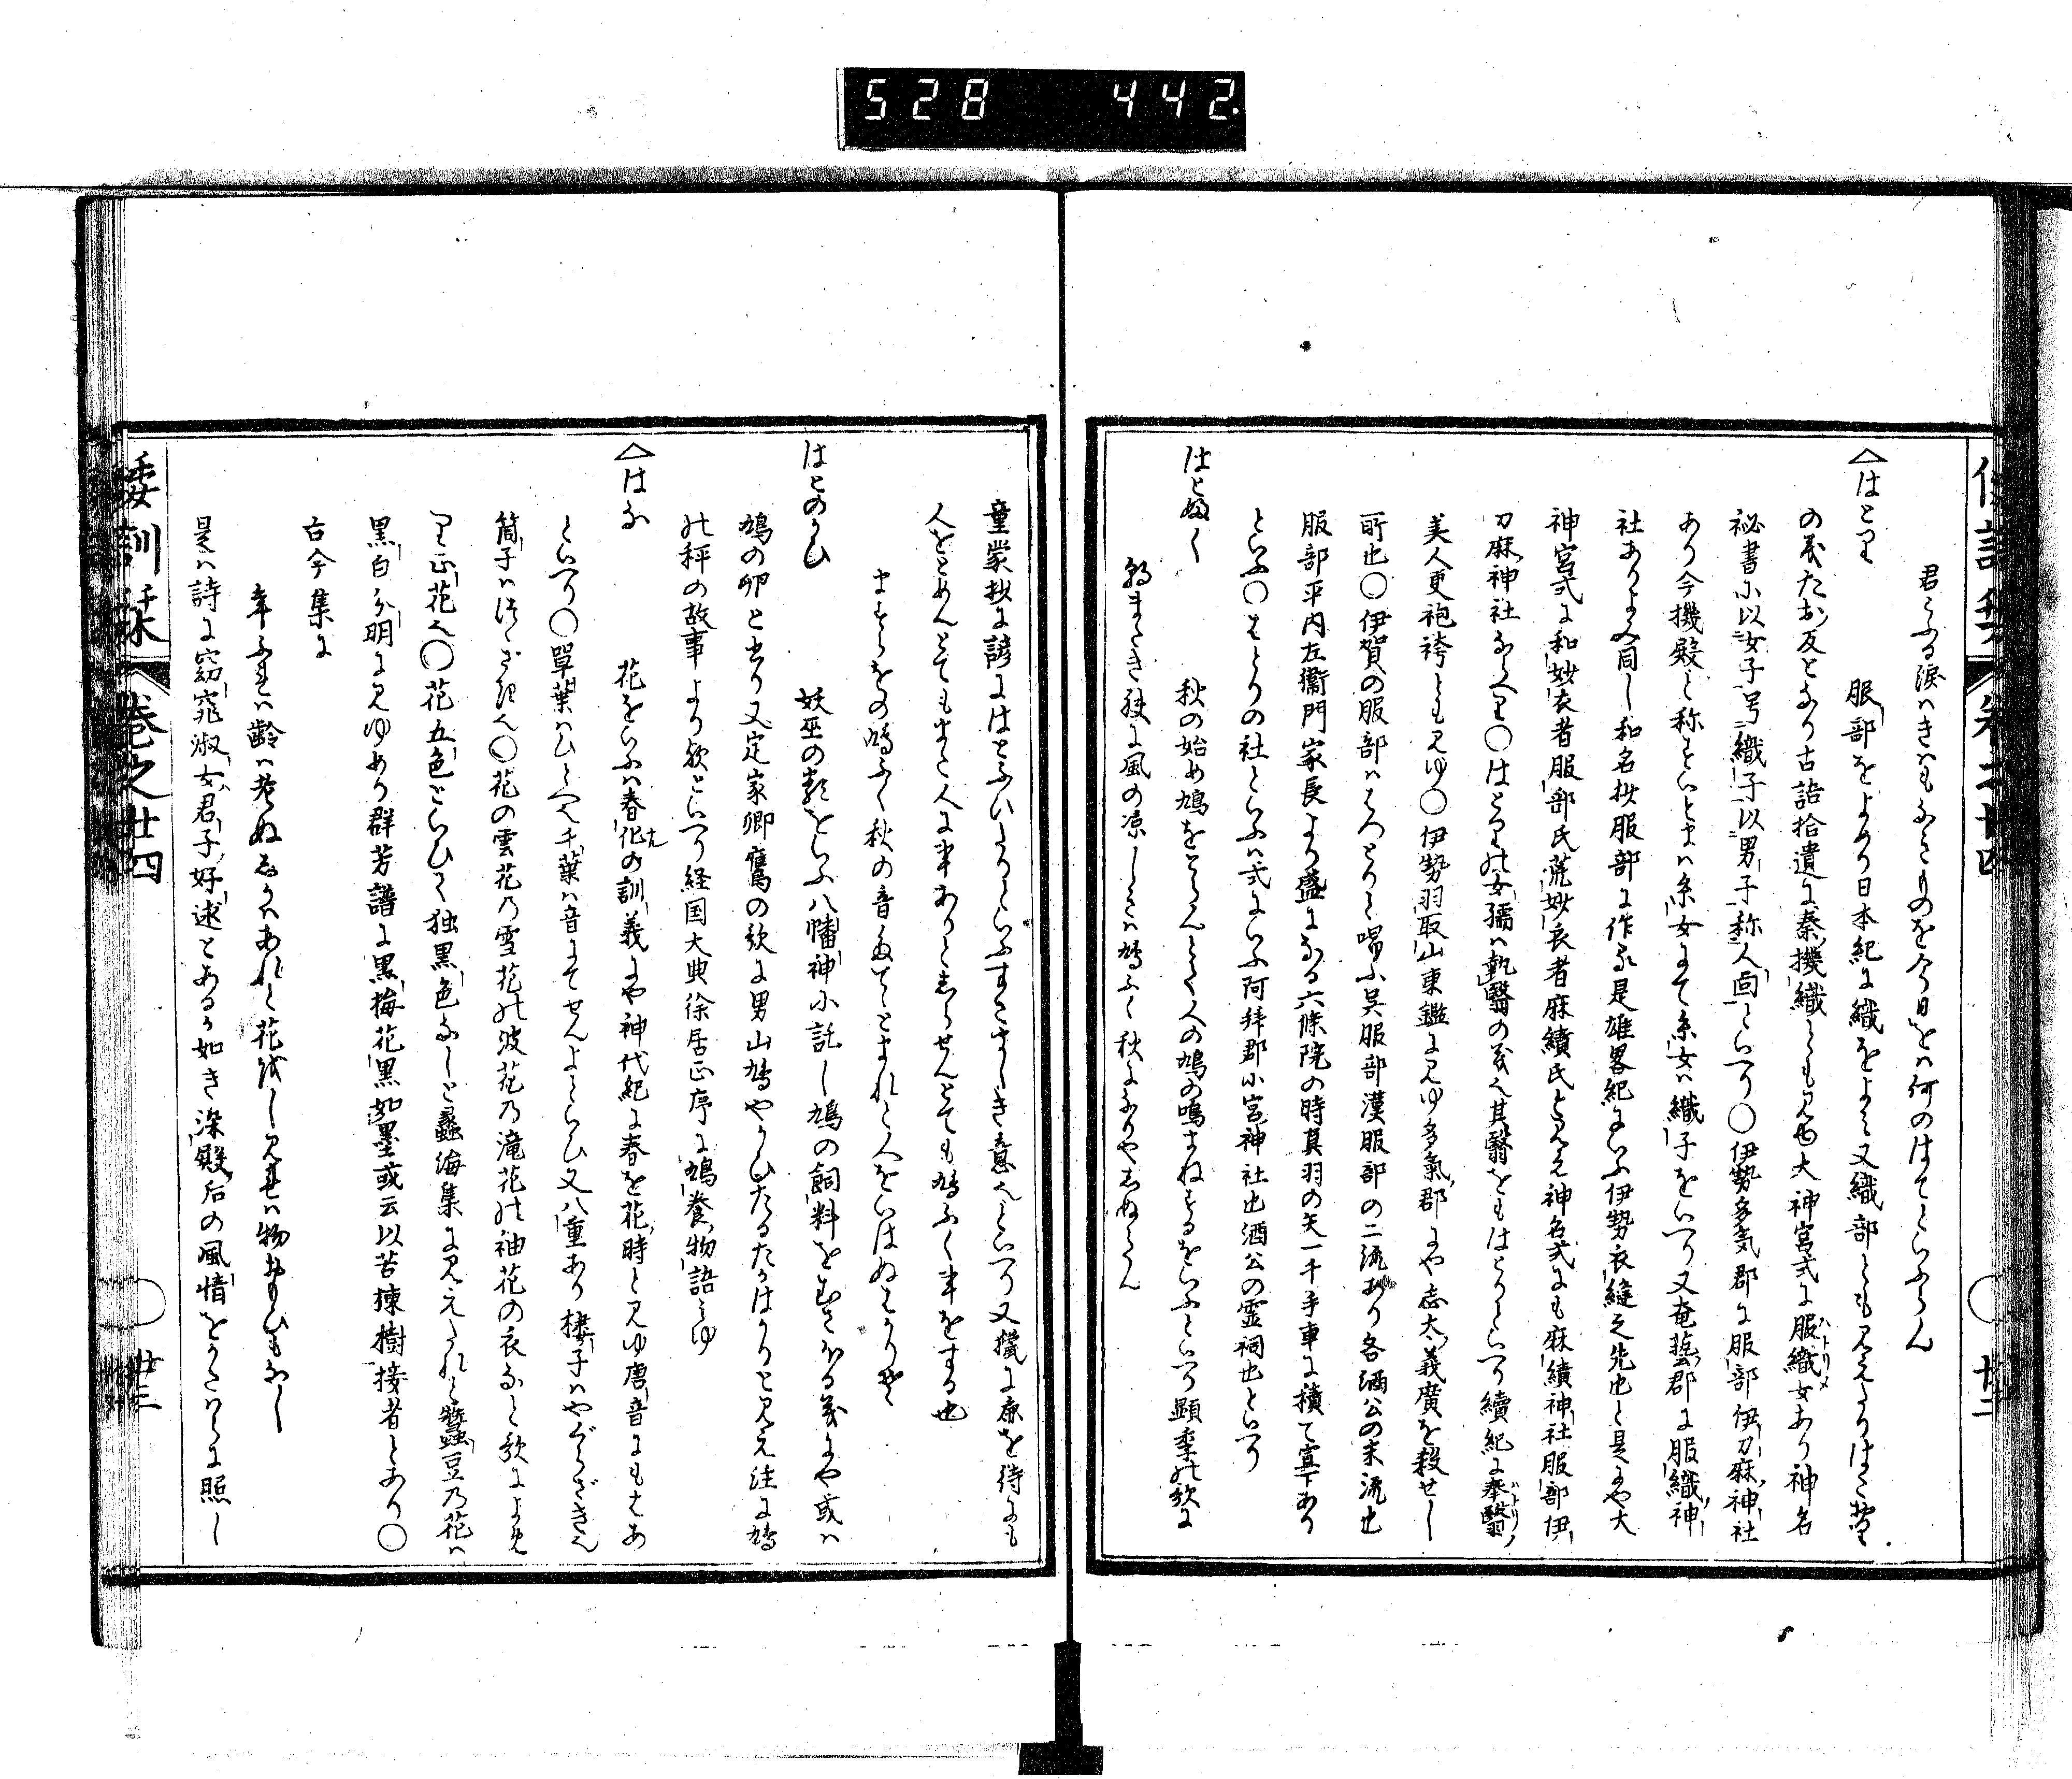 528 442.
君こふる涙ハきハもなきものを今日をハ何のはてといふらん
△はとり 服部をよめり日本紀に織をよミ又織部とも見えたりはた
の義たお反となり古語拾遺に秦機織とも見ゆ大神宮式に服織女あり神名
秘書小以女子号織子以男子称人面といへり〇伊勢多気郡に服部伊刀麻神社
あり今機殿と称す 糸女にて糸女ハ織子をいへり又奄藝郡に服織神
社あり 同し和名抄服部に作る是雄畧紀にいふ伊勢衣縫之先也と是にや大
神宮式に和妙衣者服部氏荒妙衣者麻績氏と見え神名式にも麻績神社服部伊
刀麻神社なと 〇はとりの女孺ハ執翳の義也其翳をもはとりといへり續紀に奉翳
美人更袍袴とも見ゆ〇伊勢羽取山東鑑に見ゆ多氣郡にや志太義廣を殺せし
所也〇伊賀の服部ハはとりと唱ふ呉服部漢服部の二流あり各酒公の末流也
服部平内左衞門家長より盛になる六條院の時真羽の矢一千手車に積て宣下あり
といふ〇はとりの社といふハ式にいふ阿拝郡小宮神社也酒公の霊祠也といへり
はとふく 秋の始め鳩をとらんとて人の鳩の鳴まねするをいふといへり顕季の歌に
朝またき 風の凉しさハ鳩ふく秋になりやしぬらん
童蒙抄に諺にはとふいたりといふ 意也といへり又獵に鹿を待にも
人をとめんとてもまた人に事ありとしらせんとても鳩ふく事をする也
ますらをの鳩ふく秋の音たててとまれと人をいはぬはかりそ
はとのかひ 妖巫の類をいふ八幡神小託し鳩の飼料をむさほる義にや或ハ
鳩の卵と書り又定家卿鷹の歌に男山鳩やかひたるたかはかりと見え注に鳩
の秤の故事より歌といへり経国大典徐居正序に鳩養物語みゆ
△はな 花をいふハ春化の訓義にや神代紀に春を花時と見ゆ唐音にもはあ
といへり〇單葉ハひとへ千葉ハ音にてせんよといひ又八重あり楼子ハやぐらざき也
筒子ハ つゝざき也〇花の雲花乃雪花の波花乃滝花の袖花の衣なと歌によめ
り 花也〇花五色といひて独黒色なしと蠡海集に見えたれと蠶豆乃花ハ
黒白分明に見ゆめり群芳譜に黒梅花黒如墨或云以苦楝樹接者とあり〇
古今集に
年ふれハ齢ハ老ぬしかハあれと花をし見れハ物おもひもなし
是ハ詩に窈窕淑女君子好逑とあるか如き染殿后の風情を に照し
倭訓栞 卷之廿四 廿三